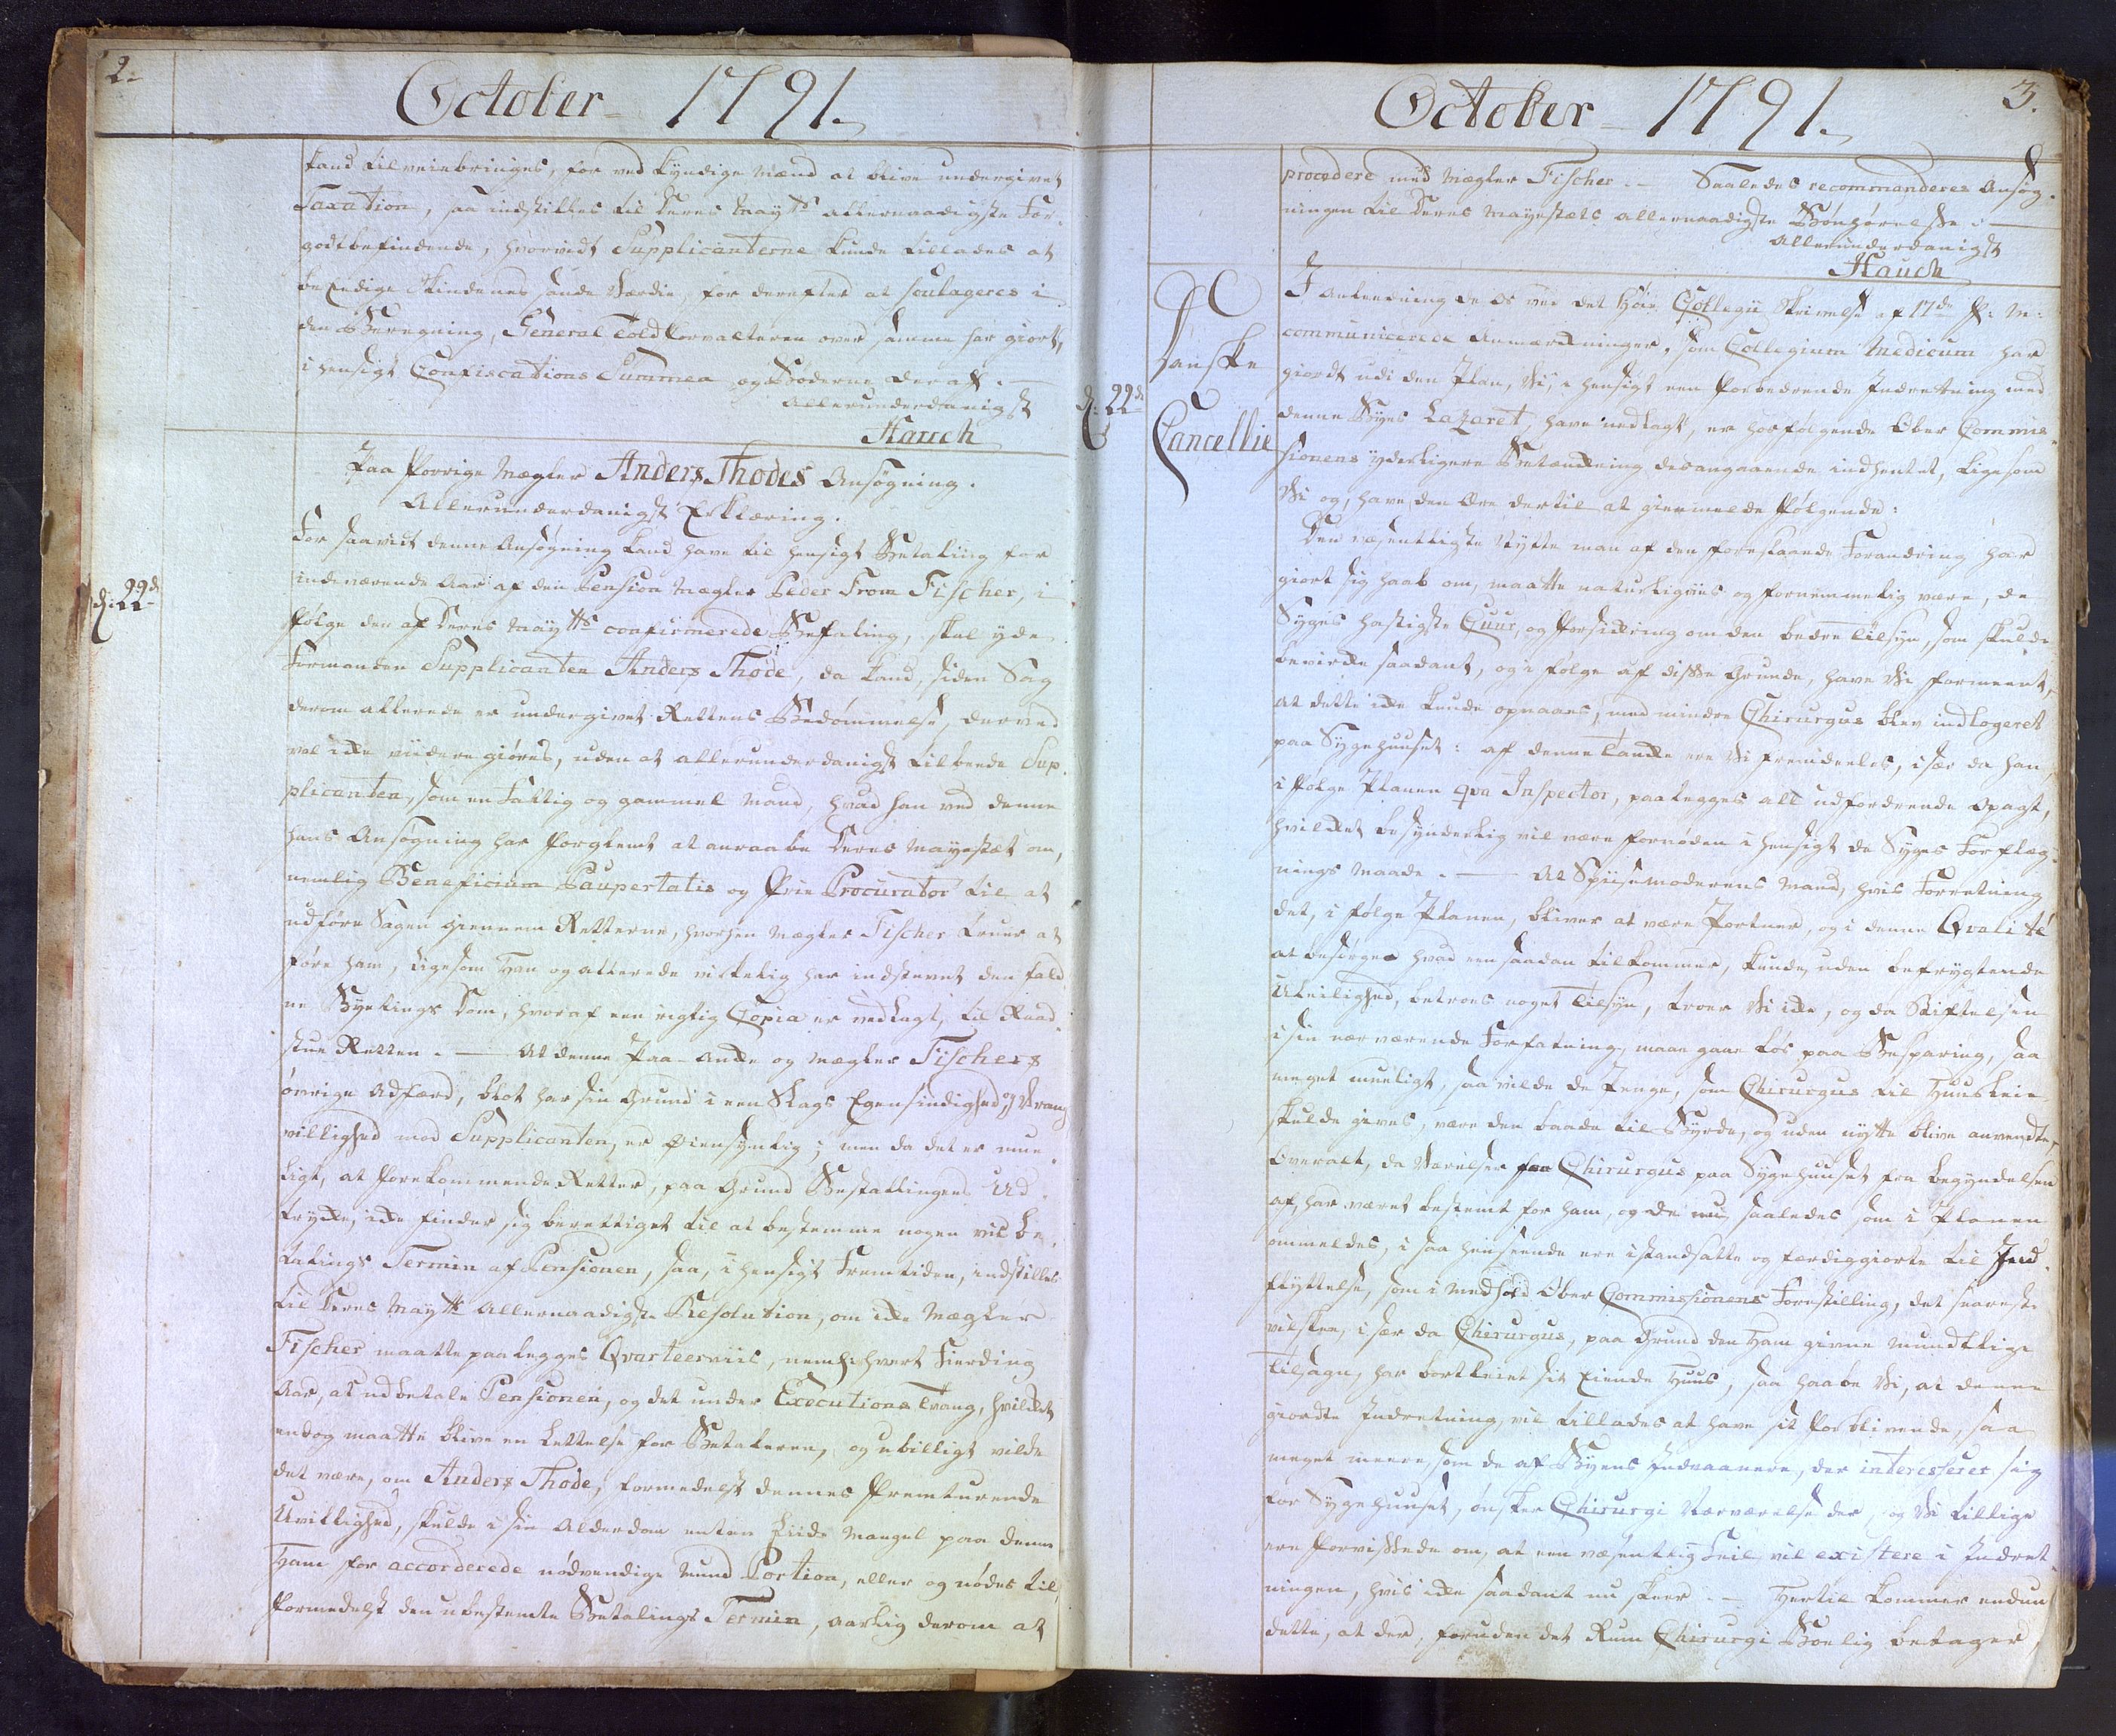 2.
October 1791.
kand tilveiebringes, for ved kyndige Mænd at blive undergivet
Taxation, saa indstilles til Deres Maytts allernaadigste For-
godtbefindende, hvorvidt Supplicanterne kunde tillades at
beeedige Skindenes sande Værdie, for derefter at soulageres i
den Beregning, General Toldforvalteren over samme har giort,
i hensigt Confiscations Summen og Bøderne deraf. —
Allerunderdanigst
Hauch
d: 22de
Paa forrige Mægler Anders Thodes Ansøgning.
Allerunderdanigst Erklæring.
For saavidt denne Ansøgning kand have til hensigt Betaling for
indeværende Aar af den Pension Mægler Peder From Fischer, i
følge den af Deres Maytts confirmerede Befaling, skal yde
Formanden Supplicanten Anders Thode, da kand, siden Sag
derom allerede er undergivet Rettens Bedømmelse, derved
vel ikke viidere giøres, uden at allerunderdanigst tilbede Sup-
plicanten, som en fattig og gammel Mand, hvad han ved denne
hans Ansøgning har forglemt at anraabe Deres Mayestæt om,
nemlig Beneficium Paupertatis og frie Procurator til at
udføre Sagen giennem Retterne, hvorhen Mægler Fischer truer at
føre ham, ligesom Han og allerede virkelig har indstevnet den fald-
ne Byetings Dom, hvoraf een rigtig Copia er vedlagt, til Raad-
stue Retten. — At denne Paa-Anke og Mægler Fischers
øvrige Adfærd, blot har sin Grund i een Slags Egensindighed og Vrang-
villighed mod Supplicanten, er øiensynlig; men da det er mue-
ligt, at forekommende Retter, paa Grund Bestallingens Ud-
trykke, ikke finder sig berettiget til at bestemme nogen vis Be-
talings Termin af Pensionen, saa, i hensigt Fremtiden, indstilles
til Deres Maytts Allernaadigste Resolution, om ikke Mægler
Fischer maatte paalegges Qvarteerviis, nemlig hvert Fierding
Aar, at udbetale Pensionen, og det under Executions Tvang, hvilket
endog maatte blive en Lettelse for Betaleren, og ubilligt vilde
det være, om Anders Thode, formedelst dennes fremturende
Uvillighed, skulde i sin Alderdom enten liide Mangel paa denne
Ham for accorderede nødvendige Mund Portion, eller og nødes til,
formedelst den ubestemte Betalings Termin, aarlig derom at
October 1791.
3.
procedere med Mægler Fischer. — Saaledes recommanderes Ansøg-
ningen til Deres Mayestæts allernaadigste Bønhørelse. —
Allerunderdanigst
Hauch
d: 22de
Danske
Cancellie
I Anledning de os ved det høie Collegii Skrivelse af 17de f: M:
communicerede Anmærkninger, som Collegium Medicum har
giordt udi den Plan, Vi, i hensigt een forbedrende Indretning med
denne Byes Lazaret, have indlagt, er hosfølgende Ober Commis-
sionens yderligere Betænkning desangaaende indhentet, ligesom
Vi og, have den Ære dertil at giemelde følgende:
Den væsentligste Nytte man af den forestaaende Forandring har
giort sig haab om, maatte naturligviis og fornemmelig være, de
Syges hastigste Cuur, og forsikring om den bedre Tilsyn, som skulde
bevirke saadant, og i følge af disse Grunde, have Vi formeent,
at dette ikke kunde opnaaes, med mindre Chirurgus blev indlogeret
paa Sygehuuset: af denne Tanke ere Vi fremdeeles, især da han,
i følge Planen qva Inspector, paalegges all udfordrende Opagt,
hvilket besynderlig vil være fornøden i hensigt de Syges Forpleg-
nings Maade. — At Spiisemoderens Mand, hvis Forretning
det, i følge Planen, bliver at være Portner, og i denne Qvalité
at besørge hvad een saadan tilkommer, kunde, uden befrygtende
Uleilighed, betroes noget Tilsyn, troer Vi ikke, og da Stiftelsen
i sin nærværende Forfatning, maae gaae løs paa Besparing, saa
meget mueligt, saa vilde de Penge, som Chirurgus til Huusleie
skulde gives, være den baade til Byrde, og uden nytte blive anvendte,
Overalt, da Værelser for Chirurgus paa Sygehuuset fra begyndelsen
af, har været bestemt for ham, og de nu saaledes som i Planen
ommeldes, i saa henseende ere istandsatte og færdiggiorte til Ind-
flyttelse, som i Medhold Ober Commissionens Forestilling, det snareste
vil skee, især da Chirurgus, paa Grund den Ham givne mundtlige
Tilsagn, har bortleiet sit eiende Huus, saa haabe Vi, at denne
giordte Indretning, vil tillades at have sit forblivende, saa
meget meere, som de af Byens Indvaanere, der interesserer sig
for Sygehuuset, ønsker Chirurgi Nærværelse der, og Vi tillige
ere forvissede om, at een væsentlig Feil vil existere i Indret-
ningen, hvis ikke saadant nu skeer. — Hertil kommer endnu
dette, at der, foruden det Rum Chirurgi Boelig betager,